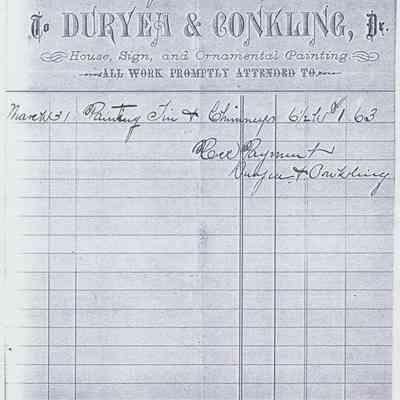 To DURYEA & CONKLING, Dr.
House, Sign, and Ornamental Painting
ALL WORK PROMPTLY ATTENDED TO
March 31 Painting Tin & Chimneys $1 63
Recd Payment
Duryea & Conkling